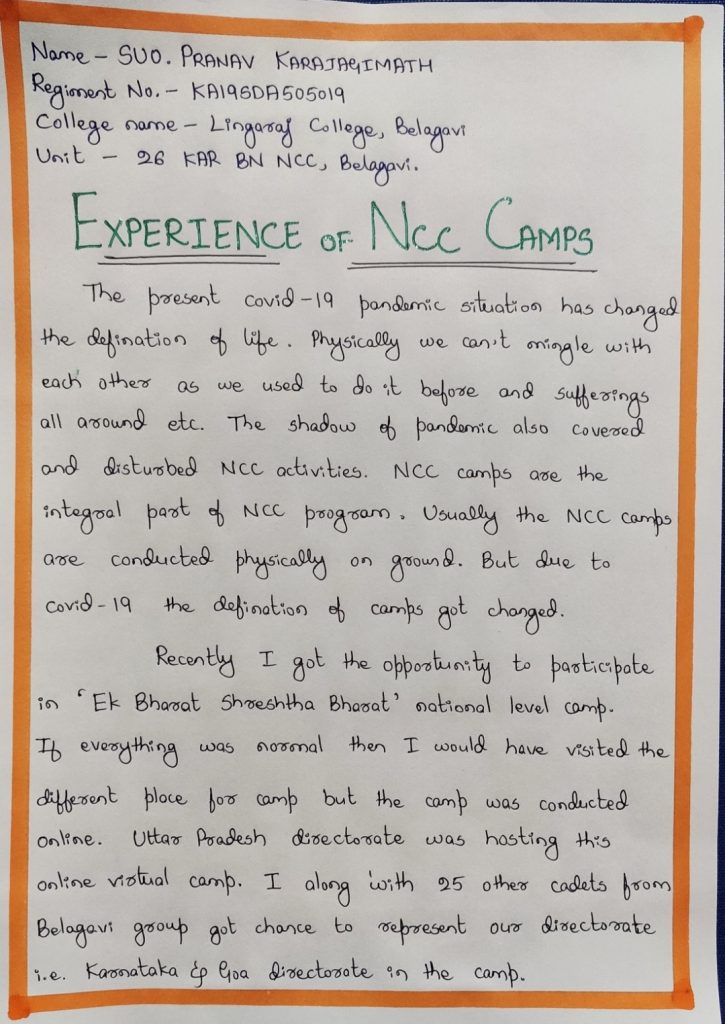 Name – SUO. PRANAV KARAJAGIMATH
Regiment No. – KA19SDA505019
College name – Lingaraj College, Belagavi
Unit – 26 KAR BN NCC, Belagavi.
EXPERIENCE OF NCC CAMPS
The present covid-19 pandemic situation has changed
the defination of life. Physically we can't mingle with
each other as we used to do it before and sufferings
all around etc. The shadow of pandemic also covered
and disturbed NCC activities. NCC camps are the
integral part of NCC program. Usually the NCC camps
are conducted physically on ground. But due to
covid-19 the defination of camps got changed.
Recently I got the opportunity to participate
in 'Ek Bharat Shreshtha Bharat' national level camp.
If everything was normal then I would have visited the
different place for camp but the camp was conducted
online. Uttar Pradesh directorate was hosting this
online virtual camp. I along with 25 other cadets from
Belagavi group got chance to represent our directorate
i.e. Karnataka & Goa directorate in the camp.